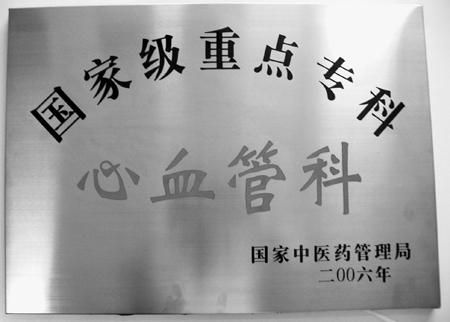 国家级重点专科
心血管科
国家中医药管理局
二00六年